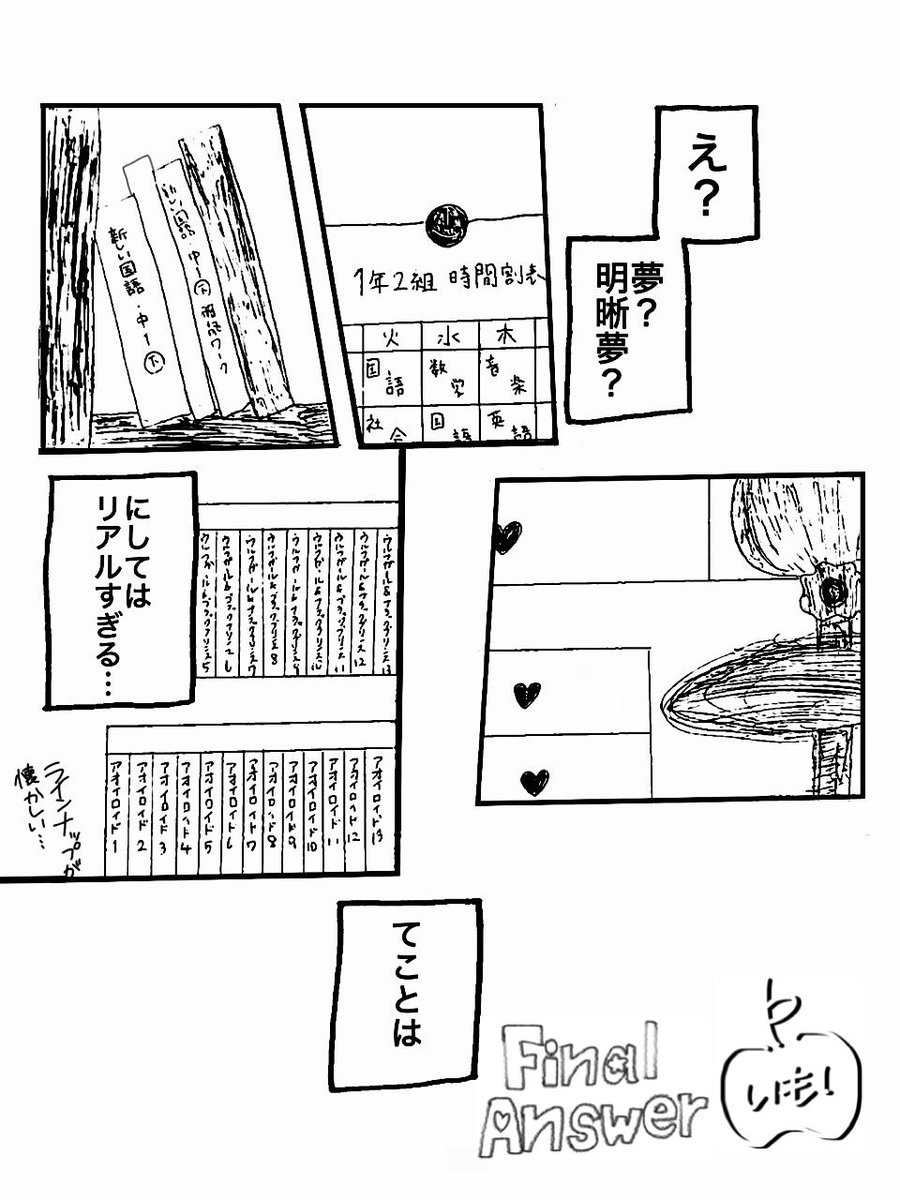 え?
夢?
明晰夢?
1年2組 時間割表
火 水 木
国語 数学 音楽
社会 国語 英語
新しい国語・中1 下
新しい国語・中1 下
ワーク
にしては
リアルすぎる…
ウルフガール&ブラックプリンス13
ウルフガール&ブラックプリンス12
ウルフガール&ブラックプリンス11
ウルフガール&ブラックプリンス10
ウルフガール&ブラックプリンス9
ウルフガール&ブラックプリンス8
ウルフガール&ブラックプリンス7
ウルフガール&ブラックプリンス6
ウルフガール&ブラックプリンス5
アオイロイド13
アオイロイド12
アオイロイド11
アオイロイド10
アオイロイド9
アオイロイド8
アオイロイド7
アオイロイド6
アオイロイド5
アオイロイド4
アオイロイド3
アオイロイド2
アオイロイド1
ラインナップが
懐かしい…
てことは
Final
Answer